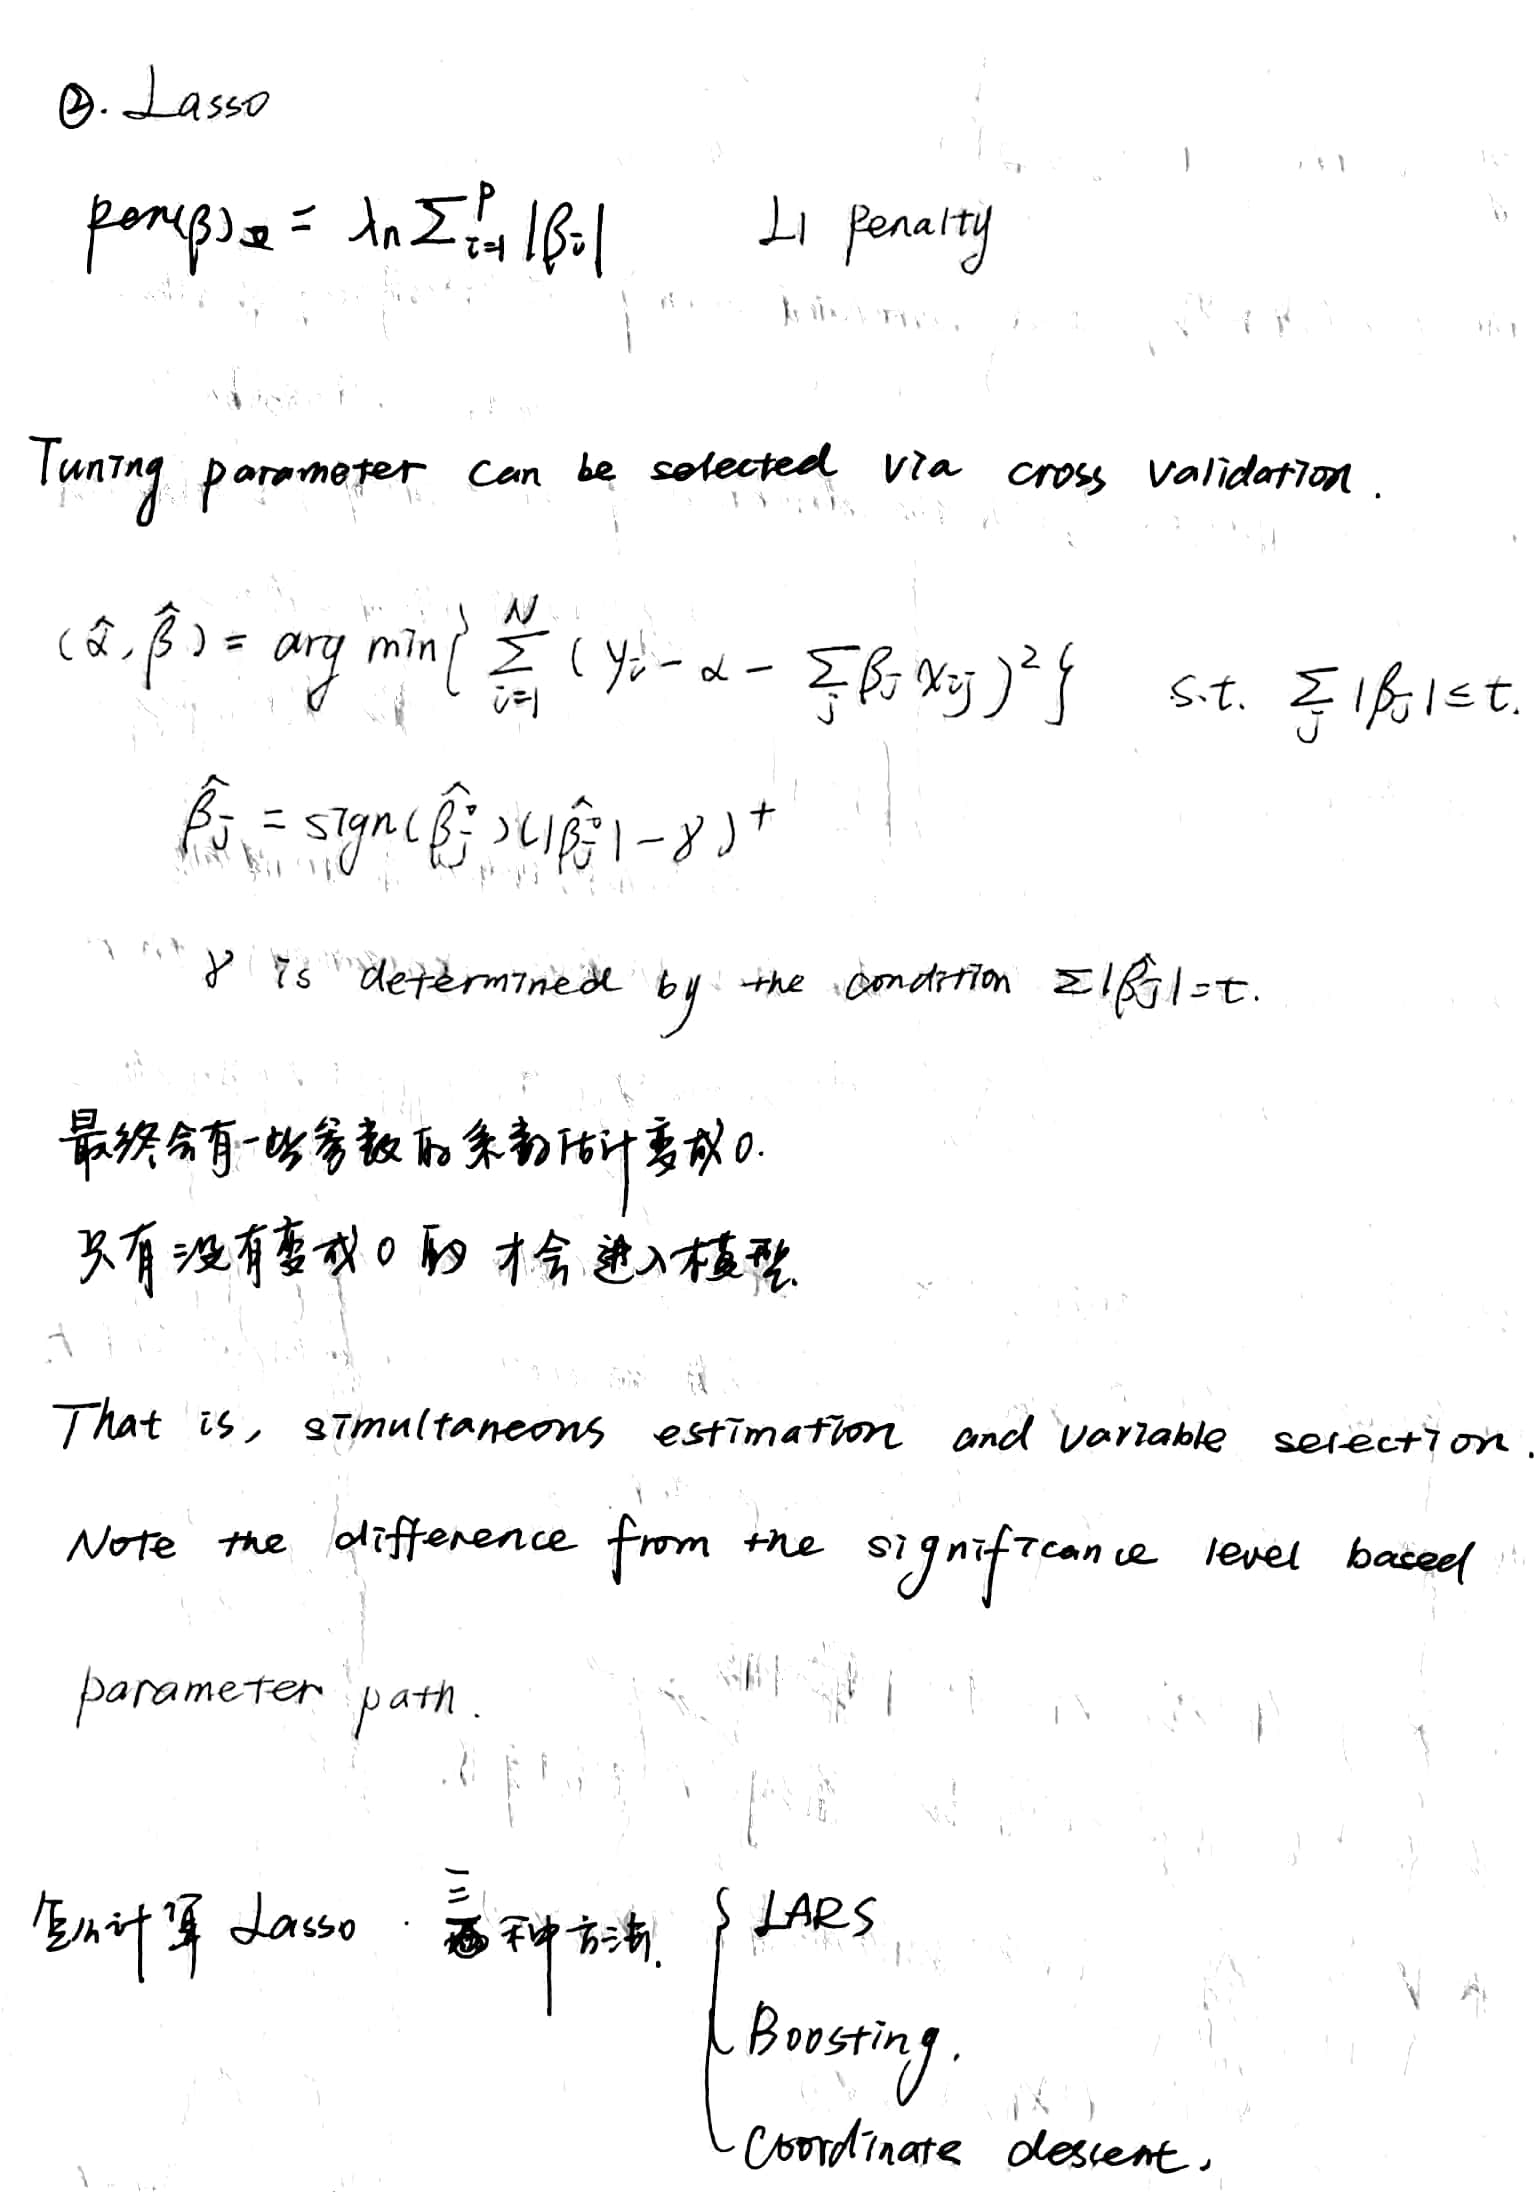 ②. Lasso
pen(β) = λn Σ_{i=1}^{p} |βi| L1 penalty
Tuning parameter can be selected via cross validation.
(α̂, β̂) = arg min{ Σ_{i=1}^{N} (yi - α - Σ_j βj xij)² } s.t. Σ_j |βj| ≤ t.
β̂j = sign(β̂j°)(|β̂j°| - γ)⁺
γ is determined by the condition Σ|β̂j| = t.
最终会有一些参数的系数估计变成0.
只有没有变成0的才会进入模型.
That is, simultaneous estimation and variable selection.
Note the difference from the significance level based
parameter path.
怎么计算 Lasso. 三种方法. { LARS
Boosting.
Coordinate descent.